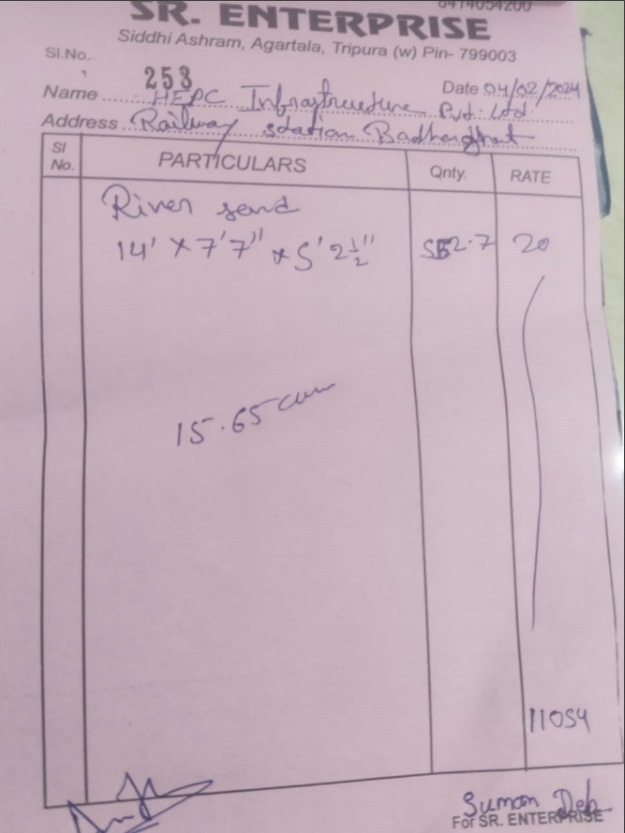 SR. ENTERPRISE
Siddhi Ashram, Agartala, Tripura (w) Pin- 799003
Sl.No. 253
Date 04/02/2024
Name HEPC Infrastructure Pvt. Ltd
Address Railway station Badharghat
Sl No. PARTICULARS Qnty. RATE
River sand
14' x 7'7" x 5' 2½" 552.7 20
15.65 cum
11054
Suman Deb
For SR. ENTERPRISE